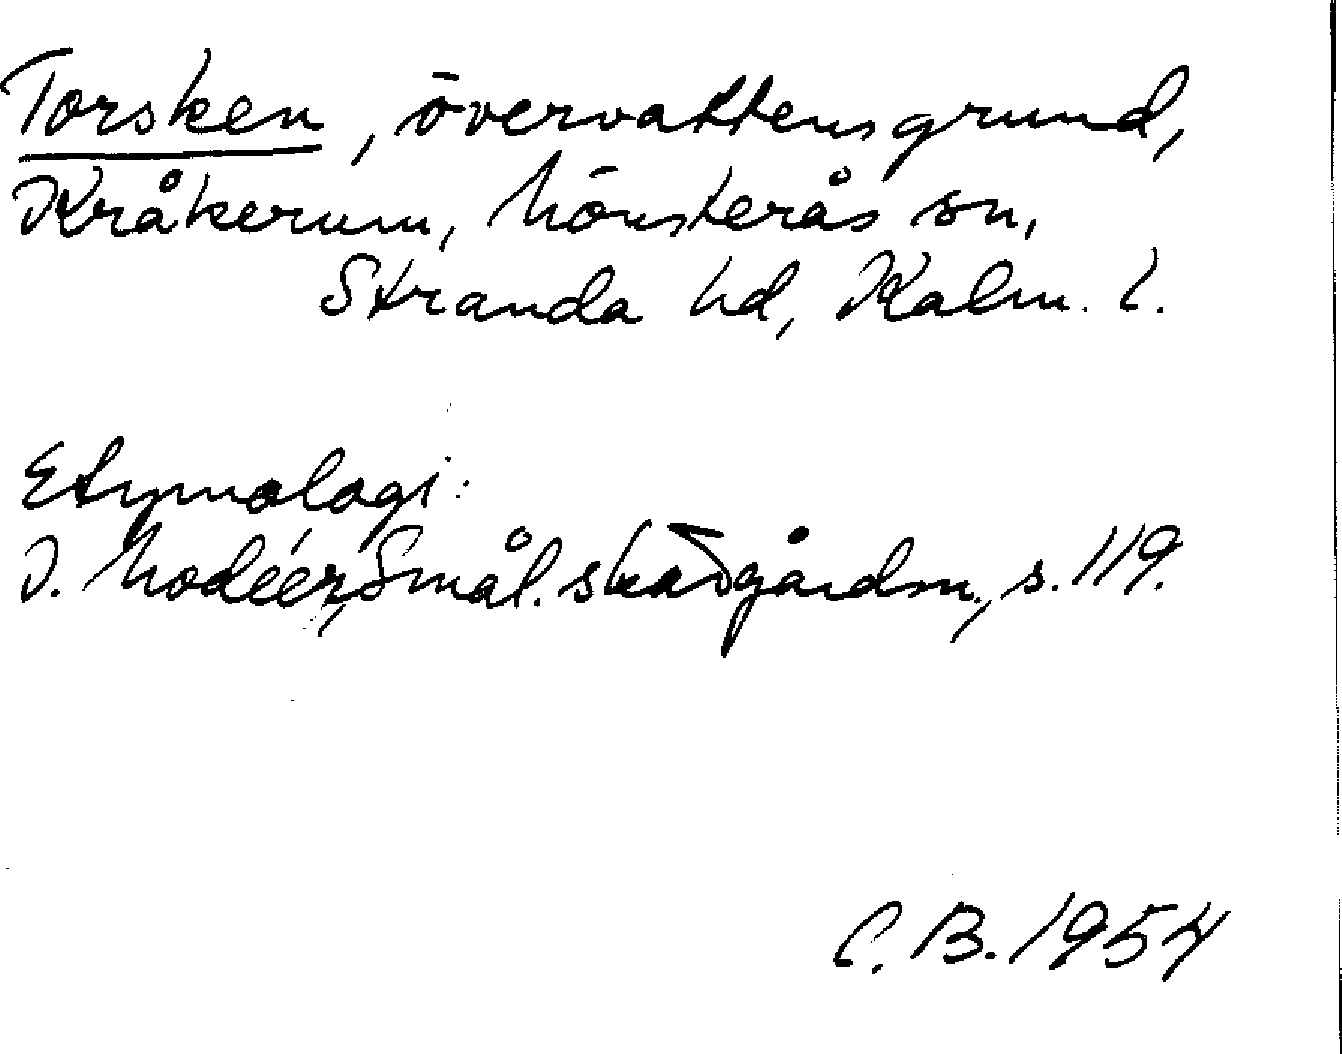 Torsken, övervattensgrund,
Kråkerum, Mönsterås sn,
Stranda hd, Kalm. l.
Etymologi:
I. Modéer, Smål. skärgårdsn., s. 119.
C. B. 1954